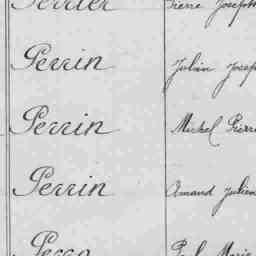 Perrier Pierre Joseph
Perrin Julien Josep
Perrin Michel Pierre
Perrin Amand Julien
Perro Paul Marie